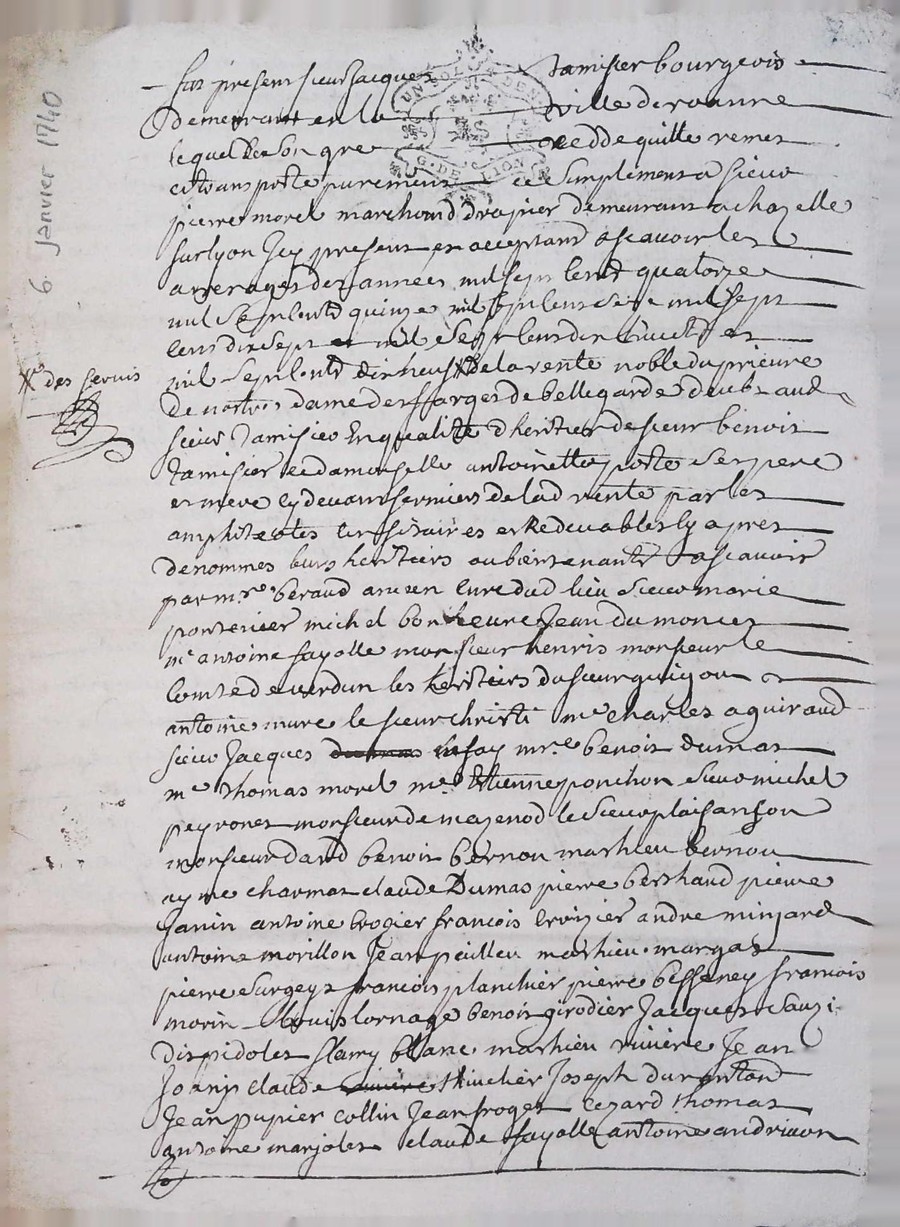 6 Janvier 1740
UN SOL
G. DE LION
fut present sieur Jacques tamisier bourgeois
demeurant en la ville de roanne
lequel de son gre cedde quitte remet
et transporte purement et simplement a sieur
pierre morel marchand drapier demeurant a chazelle
sur lyon Icy present et acceptant ascavoir les
arrerages des annees mil sept cent quatorze
mil sept centd quinze mil sept cent seize mil sept
cent dix sept et mil sept cent dix huict et
mil sept centd dix neuf de la rente noble du prieure
des servis
de nostre dame des farges de bellegarde deubs aud
sieur tamisier en qualite d heritier de sieur benoit
tamisier et damoiselle antoinette poste ses pere
et mere cy devant fermiers de lad rente par les
amphiteotes censitaires et Redevables cy apres
denommes leurs heritiers ou bientenants ascavoir
par mre beraud ancien cure dud lieu sieur marie
ponterier michel bonheure Jean du monces
me antoine fayolle monsieur henris monsieur le
Comte de verdun les heritiers du sieur guigou
antoine mure le sieur christi me charles aguiraud
sieur Jacques dufay mre benoit dumas
me thomas morel me Etienne ponchon sieur michel
peyronet monsieur de mazenod le sieur plaisançon
monsieur dard benoit bernou mathieu bernou
ayme charmat claude Dumas pierre berthaud pierre
Janin antoine brogier francois croizier andre minjard
antoine morillon Jean peilleu mathieu margat
pierre surgeys francois planchier pierre besseney francois
morin Louis lornage benoit girodier Jacques
blanc mathieu riviere Jean
claude Joseph durantond
Jean pupier collin Jean froget cezard thomas
antoine marjolet claude fayolle antoine